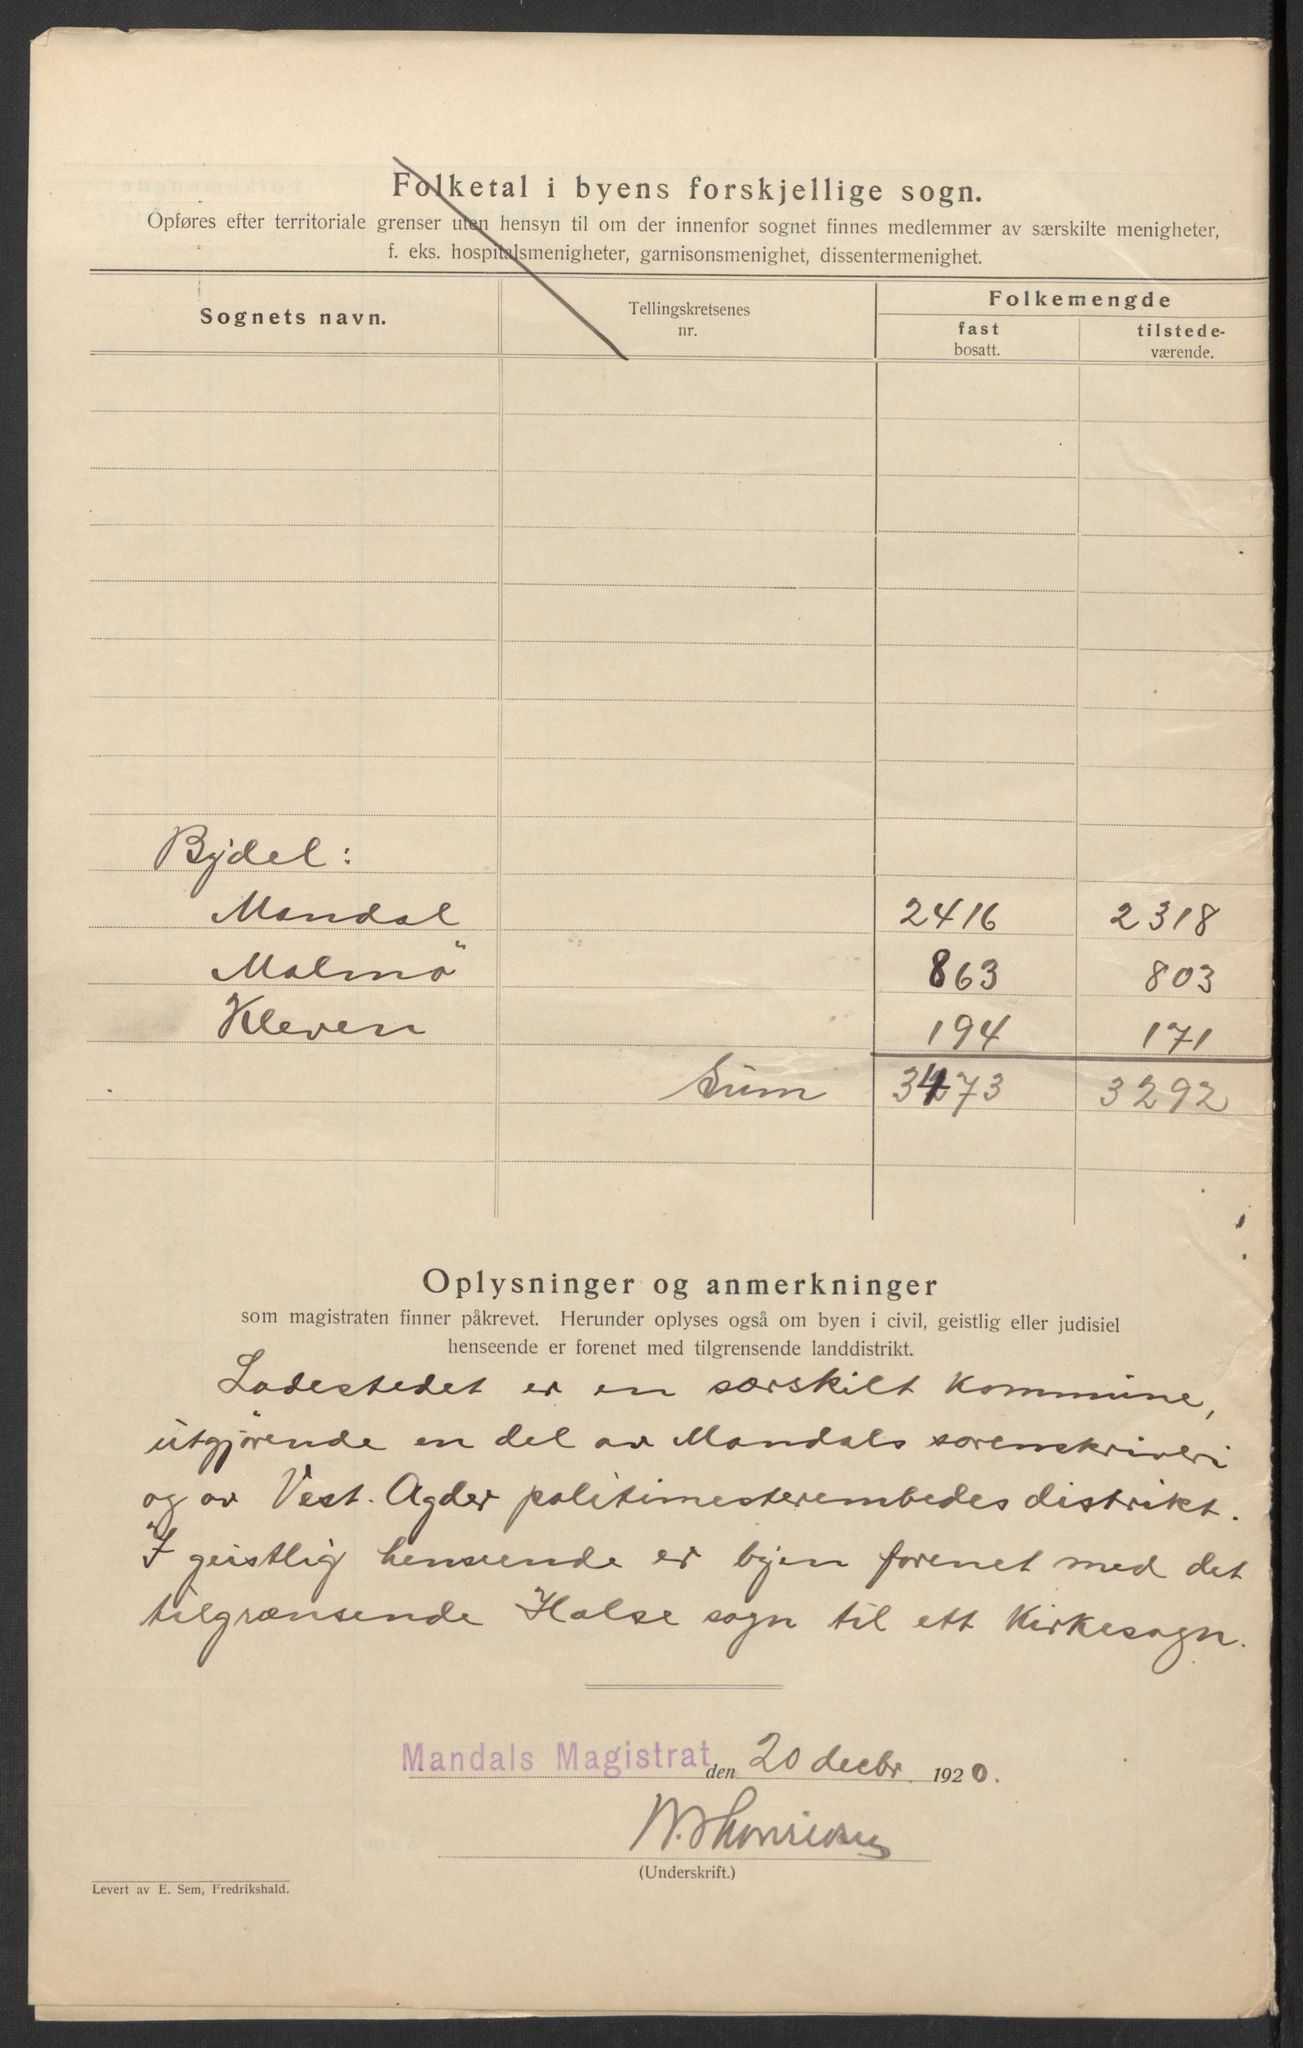 Folketal i byens forskjellige sogn.
Opføres efter territoriale grenser uten hensyn til om der innenfor sognet finnes medlemmer av særskilte menigheter,
f. eks. hospitalsmenigheter, garnisonsmenighet, dissentermenighet.
Sognets navn. Tellingskretsenes nr. Folkemengde
fast bosatt. tilstede-værende.
Bydel:
Mandal 2416 2318
Malmö 863 803
Kleven 194 171
Sum 3473 3292
Oplysninger og anmerkninger
som magistraten finner påkrevet. Herunder oplyses også om byen i civil, geistlig eller judisiel
henseende er forenet med tilgrensende landdistrikt.
Ladestedet er en særskilt kommune,
utgjørende en del av Mandals sorenskriveri
og av Vest. Agder politimesterembedes distrikt.
I geistlig henseende er byen forenet med det
tilgrænsende Halse sogn til ett Kirkesogn.
Mandals Magistrat den 20 decbr. 1920.
(Underskrift.)
Levert av E. Sem, Fredrikshald.